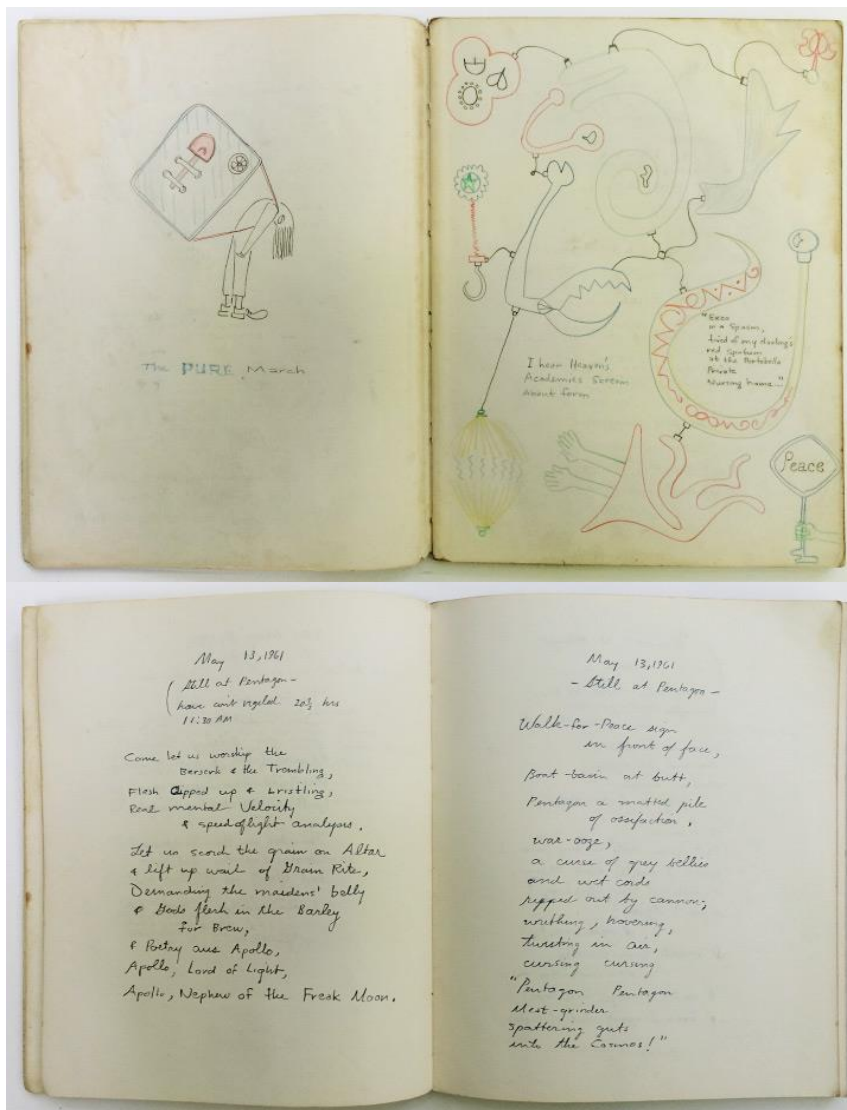 The PURE March
I hear Heaven's
Academies Scream
About form
in a Spasm,
tired of my
red
at the Portobello
Private
Nursing home..."
Peace
May 13, 1961
(Still at Pentagon-
have vigiled 20½ hrs
11:30 AM
Come let us worship the
Berserk & the Trembling,
Flesh ripped up & bristling,
Real mental Velocity
& speed of light analysis.
Let us scorch the grain on Altar
& lift up wail of Grain Rite,
Demanding the maidens' belly
& Gods flesh in the Barley
for Brew,
& Poetry aus Apollo,
Apollo, Lord of Light,
Apollo, Nephew of the Freak Moon.
May 13, 1961
- Still at Pentagon -
Walk-for-Peace sign
in front of face,
Boat-basin at butt,
Pentagon a matted pile
of ossifaction,
war-ooze,
a curse of grey bellies
and wet cords
ripped out by cannon;
writhing, hovering,
twisting in air,
cursing cursing
"Pentagon Pentagon
Meat-grinder
spattering guts
into the Cosmos!"